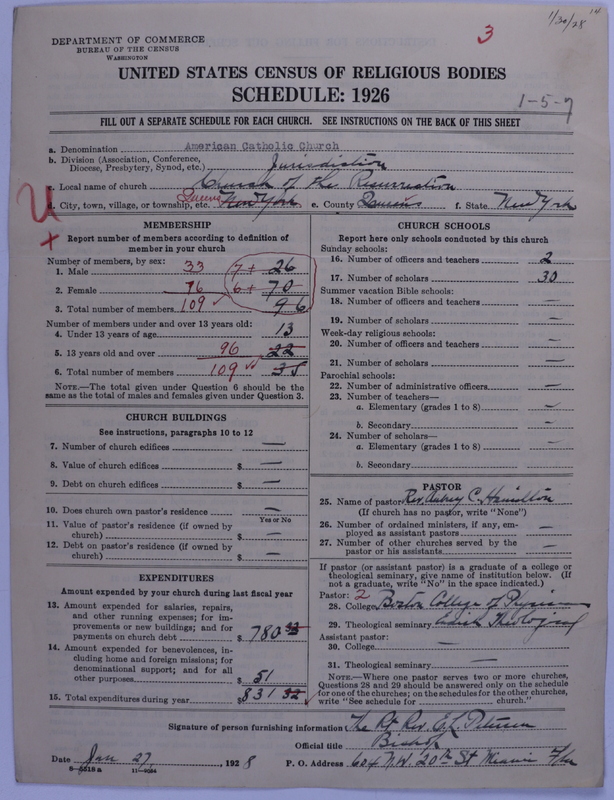 1/30/28 14
3
DEPARTMENT OF COMMERCE
BUREAU OF THE CENSUS
WASHINGTON
UNITED STATES CENSUS OF RELIGIOUS BODIES
SCHEDULE: 1926
1-5-7
FILL OUT A SEPARATE SCHEDULE FOR EACH CHURCH. SEE INSTRUCTIONS ON THE BACK OF THIS SHEET
a. Denomination American Catholic Church
b. Division (Association, Conference, Diocese, Presbytery, Synod, etc.) Jurisdiction
c. Local name of church Church of the Resurrection
d. City, town, village, or township, etc. Queens New York e. County Queens f. State New York
MEMBERSHIP
Report number of members according to definition of member in your church
Number of members, by sex:
1. Male 33 7+ 26
2. Female 76 6+ 70
3. Total number of members 109 96
Number of members under and over 13 years old:
4. Under 13 years of age 13
5. 13 years old and over 96 22
6. Total number of members 109 35
NOTE.—The total given under Question 6 should be the same as the total of males and females given under Question 3.
CHURCH BUILDINGS
See instructions, paragraphs 10 to 12
7. Number of church edifices —
8. Value of church edifices $ —
9. Debt on church edifices $ —
10. Does church own pastor's residence —
Yes or No
11. Value of pastor's residence (if owned by church) $ —
12. Debt on pastor's residence (if owned by church) $ —
EXPENDITURES
Amount expended by your church during last fiscal year
13. Amount expended for salaries, repairs, and other running expenses; for improvements or new buildings; and for payments on church debt $ 780
14. Amount expended for benevolences, including home and foreign missions; for denominational support; and for all other purposes $ 51
15. Total expenditures during year $ 831 32
CHURCH SCHOOLS
Report here only schools conducted by this church
Sunday schools:
16. Number of officers and teachers 2
17. Number of scholars 30
Summer vacation Bible schools:
18. Number of officers and teachers —
19. Number of scholars —
Week-day religious schools:
20. Number of officers and teachers —
21. Number of scholars —
Parochial schools:
22. Number of administrative officers —
23. Number of teachers—
a. Elementary (grades 1 to 8) —
b. Secondary —
24. Number of scholars—
a. Elementary (grades 1 to 8) —
b. Secondary —
PASTOR
25. Name of pastor Rev. C. Hamilton
(If church has no pastor, write "None")
26. Number of ordained ministers, if any, employed as assistant pastors —
27. Number of other churches served by the pastor or his assistants —
If pastor (or assistant pastor) is a graduate of a college or theological seminary, give name of institution below. (If not a graduate, write "No" in the space indicated.)
Pastor: 2
28. College Boston College of Physicians
29. Theological seminary Theological
Assistant pastor:
30. College —
31. Theological seminary —
NOTE.—Where one pastor serves two or more churches, Questions 28 and 29 should be answered only on the schedule for one of the churches; on the schedules for the other churches, write "See schedule for church."
Signature of person furnishing information The Rt Rev.
Official title Bishop
Date Jan 27, 1928 P. O. Address N.W. 20th St Miami Fla
8—5518 a 11—9064